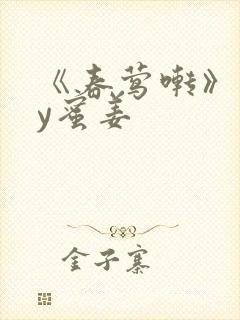 《春莺啭》
y蜜姜
金子寨